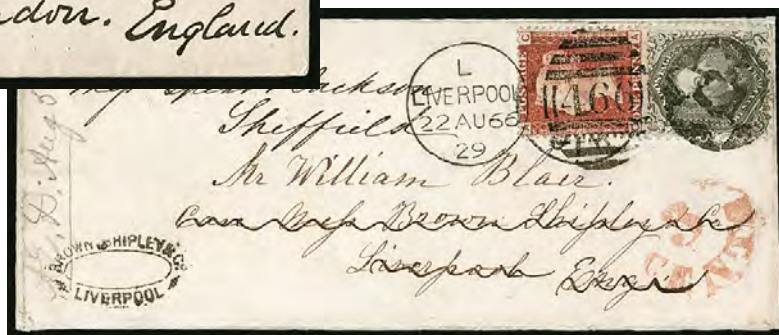 London. England.
L
LIVERPOOL
22 AU66
29
466
Mess Spear & Jackson
Sheffield
Mr William Blair.
Care Mess Brown Shipley & Co
Liverpool Engd
BROWN SHIPLEY & Co
LIVERPOOL
3